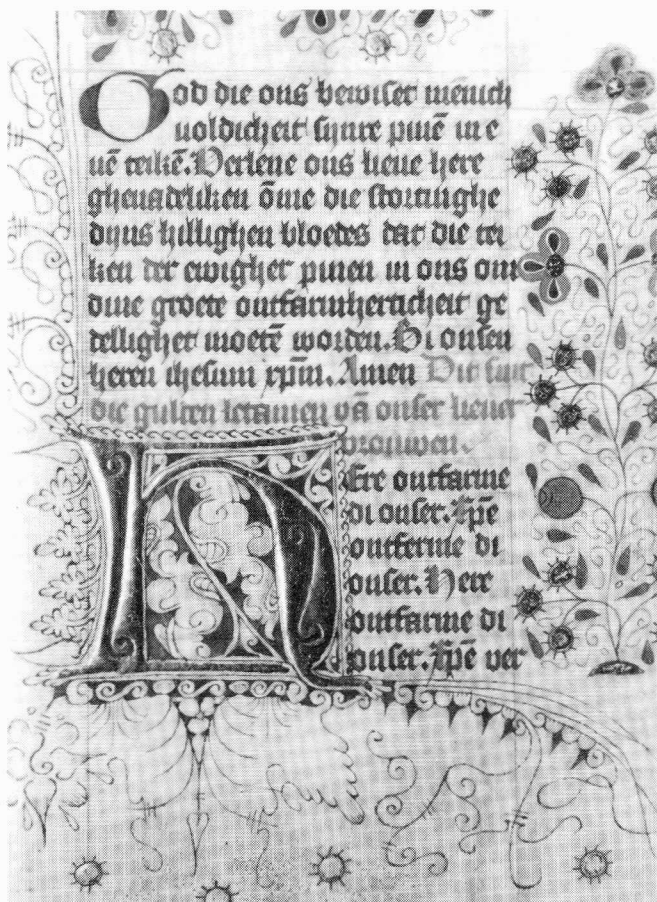 God die ons bewiset menich
uoldicheit synre pinē in e
nē teikē. Verlene ons lieue here
ghenadeliken ōme die stortinghe
dyns hillighen bloedes dat die tei
ken der ewigher pinen in ons om
dine groete ontfarmherticheit ge
delligher moetē worden. Bi onsen
heren ihesum xpm̄. Amen Dit sint
die gulden letanien vā onser lieuer
vrouwen.
Here ontfarme
di onser. Xpē
ontferme di
onser. Here
ontfarme di
onser. Xpē ver